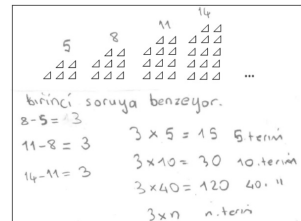 5 8 11 14
...
birinci soruya benzeyor.
8-5= 3
11-8 = 3
14-11= 3
3 x 5 = 15 5.terim
3 x 10 = 30 10.terim
3 x 40 = 120 40. "
3 x n n.terim